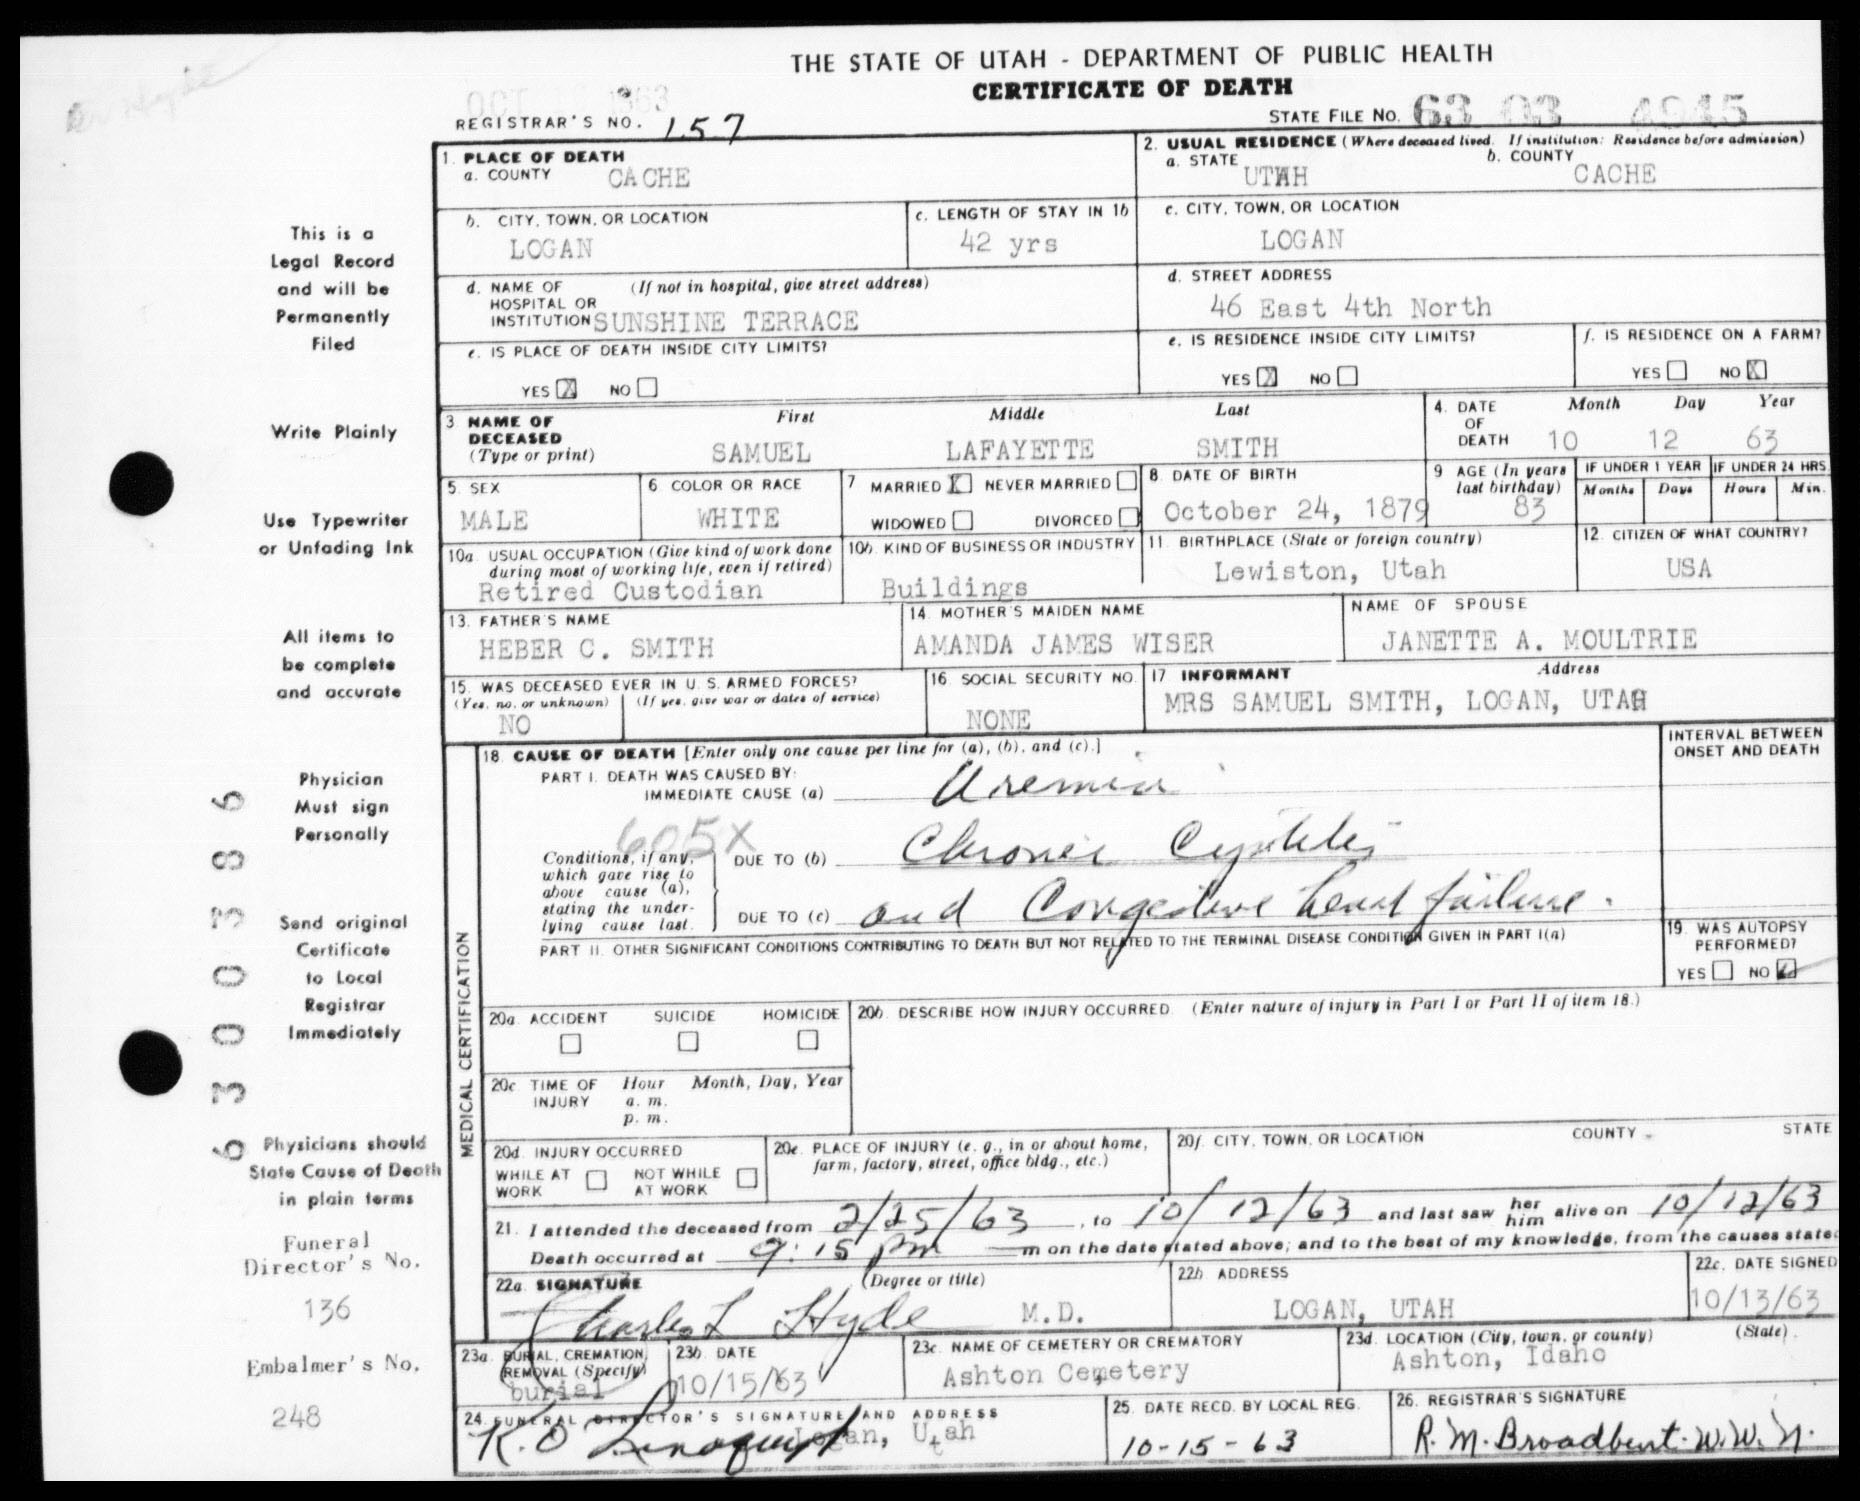 THE STATE OF UTAH - DEPARTMENT OF PUBLIC HEALTH
CERTIFICATE OF DEATH
OCT 1963
REGISTRAR'S NO. 157
STATE FILE NO. 63 03 4945
1. PLACE OF DEATH
a. COUNTY CACHE
2. USUAL RESIDENCE (Where deceased lived. If institution: Residence before admission)
a. STATE UTAH b. COUNTY CACHE
b. CITY, TOWN, OR LOCATION LOGAN
c. LENGTH OF STAY IN 1b 42 yrs
c. CITY, TOWN, OR LOCATION LOGAN
d. NAME OF HOSPITAL OR INSTITUTION (If not in hospital, give street address) SUNSHINE TERRACE
d. STREET ADDRESS 46 East 4th North
e. IS PLACE OF DEATH INSIDE CITY LIMITS?
YES X NO
e. IS RESIDENCE INSIDE CITY LIMITS?
YES X NO
f. IS RESIDENCE ON A FARM?
YES NO X
3. NAME OF DECEASED (Type or print)
First Middle Last
SAMUEL LAFAYETTE SMITH
4. DATE OF DEATH Month Day Year
10 12 63
5. SEX MALE
6. COLOR OR RACE WHITE
7 MARRIED X NEVER MARRIED
WIDOWED DIVORCED
8. DATE OF BIRTH October 24, 1879
9 AGE (In years last birthday) 83
IF UNDER 1 YEAR Months Days
IF UNDER 24 HRS. Hours Min.
10a. USUAL OCCUPATION (Give kind of work done during most of working life, even if retired)
Retired Custodian
10b. KIND OF BUSINESS OR INDUSTRY Buildings
11. BIRTHPLACE (State or foreign country) Lewiston, Utah
12. CITIZEN OF WHAT COUNTRY? USA
13. FATHER'S NAME HEBER C. SMITH
14. MOTHER'S MAIDEN NAME AMANDA JAMES WISER
NAME OF SPOUSE JANETTE A. MOULTRIE
15. WAS DECEASED EVER IN U. S. ARMED FORCES?
(Yes, no, or unknown) (If yes, give war or dates of service)
NO
16. SOCIAL SECURITY NO. NONE
17 INFORMANT Address
MRS SAMUEL SMITH, LOGAN, UTAH
MEDICAL CERTIFICATION
18. CAUSE OF DEATH [Enter only one cause per line for (a), (b), and (c).]
INTERVAL BETWEEN ONSET AND DEATH
PART I. DEATH WAS CAUSED BY:
IMMEDIATE CAUSE (a) Uremia
605X
Conditions, if any, which gave rise to above cause (a), stating the underlying cause last.
DUE TO (b) Chronic Cystitis
DUE TO (c) and Congestive heart failure.
PART II. OTHER SIGNIFICANT CONDITIONS CONTRIBUTING TO DEATH BUT NOT RELATED TO THE TERMINAL DISEASE CONDITION GIVEN IN PART I(a)
19. WAS AUTOPSY PERFORMED?
YES NO
20a. ACCIDENT SUICIDE HOMICIDE
20b. DESCRIBE HOW INJURY OCCURRED. (Enter nature of injury in Part I or Part II of item 18.)
20c TIME OF INJURY Hour Month, Day, Year
a. m.
p. m.
20d. INJURY OCCURRED
WHILE AT WORK NOT WHILE AT WORK
20e. PLACE OF INJURY (e. g., in or about home, farm, factory, street, office bldg., etc.)
20f. CITY, TOWN, OR LOCATION COUNTY STATE
21. I attended the deceased from 2/25/63, to 10/12/63 and last saw her him alive on 10/12/63
Death occurred at 9:15 pm m on the date stated above; and to the best of my knowledge, from the causes state
22a. SIGNATURE (Degree or title)
Charles L Hyde M.D.
22b ADDRESS LOGAN, UTAH
22c. DATE SIGNED 10/13/63
23a. BURIAL, CREMATION, REMOVAL (Specify) burial
23b. DATE 10/15/63
23c. NAME OF CEMETERY OR CREMATORY Ashton Cemetery
23d. LOCATION (City, town, or county) (State)
Ashton, Idaho
24. FUNERAL DIRECTOR'S SIGNATURE AND ADDRESS
K. O Lindquist Logan, Utah
25. DATE RECD. BY LOCAL REG. 10-15-63
26. REGISTRAR'S SIGNATURE
R. M. Broadbent. W.W.N.
This is a
Legal Record
and will be
Permanently
Filed
Write Plainly
Use Typewriter
or Unfading Ink
All items to
be complete
and accurate
Physician
Must sign
Personally
Send original
Certificate
to Local
Registrar
Immediately
Physicians should
State Cause of Death
in plain terms
Funeral
Director's No.
136
Embalmer's No.
248
6 3 0 0 3 3 8 6